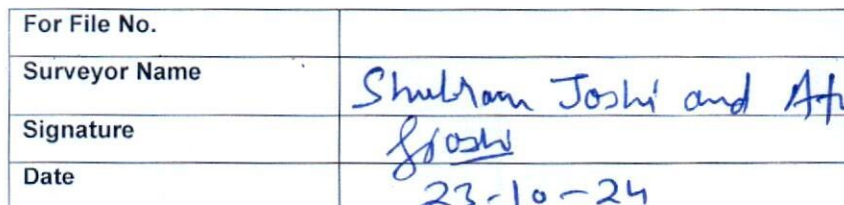 For File No.
Surveyor Name Shubham Joshi and
Signature Sjoshi
Date 23-10-24